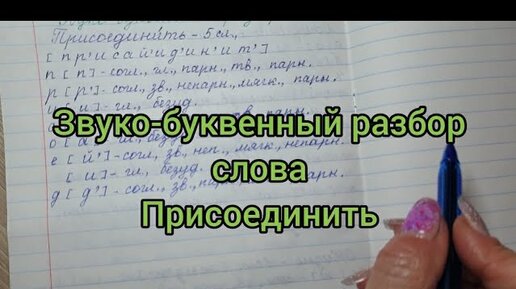 Присоединить - 5 сл.,
[п р' и с а й' и д' и н' и т']
п [п] - согл., гл., парн., тв., парн.
р [р'] - согл., зв., непарн., мягк., парн.
[и] - гл., безуд.
Звуко-буквенный разбор
безуд.
е [й'] - согл., зв., неп., мягк, непарн.
слова
[и] - гл., безуд.
д [д'] - согл., зв., парн.
Присоединить